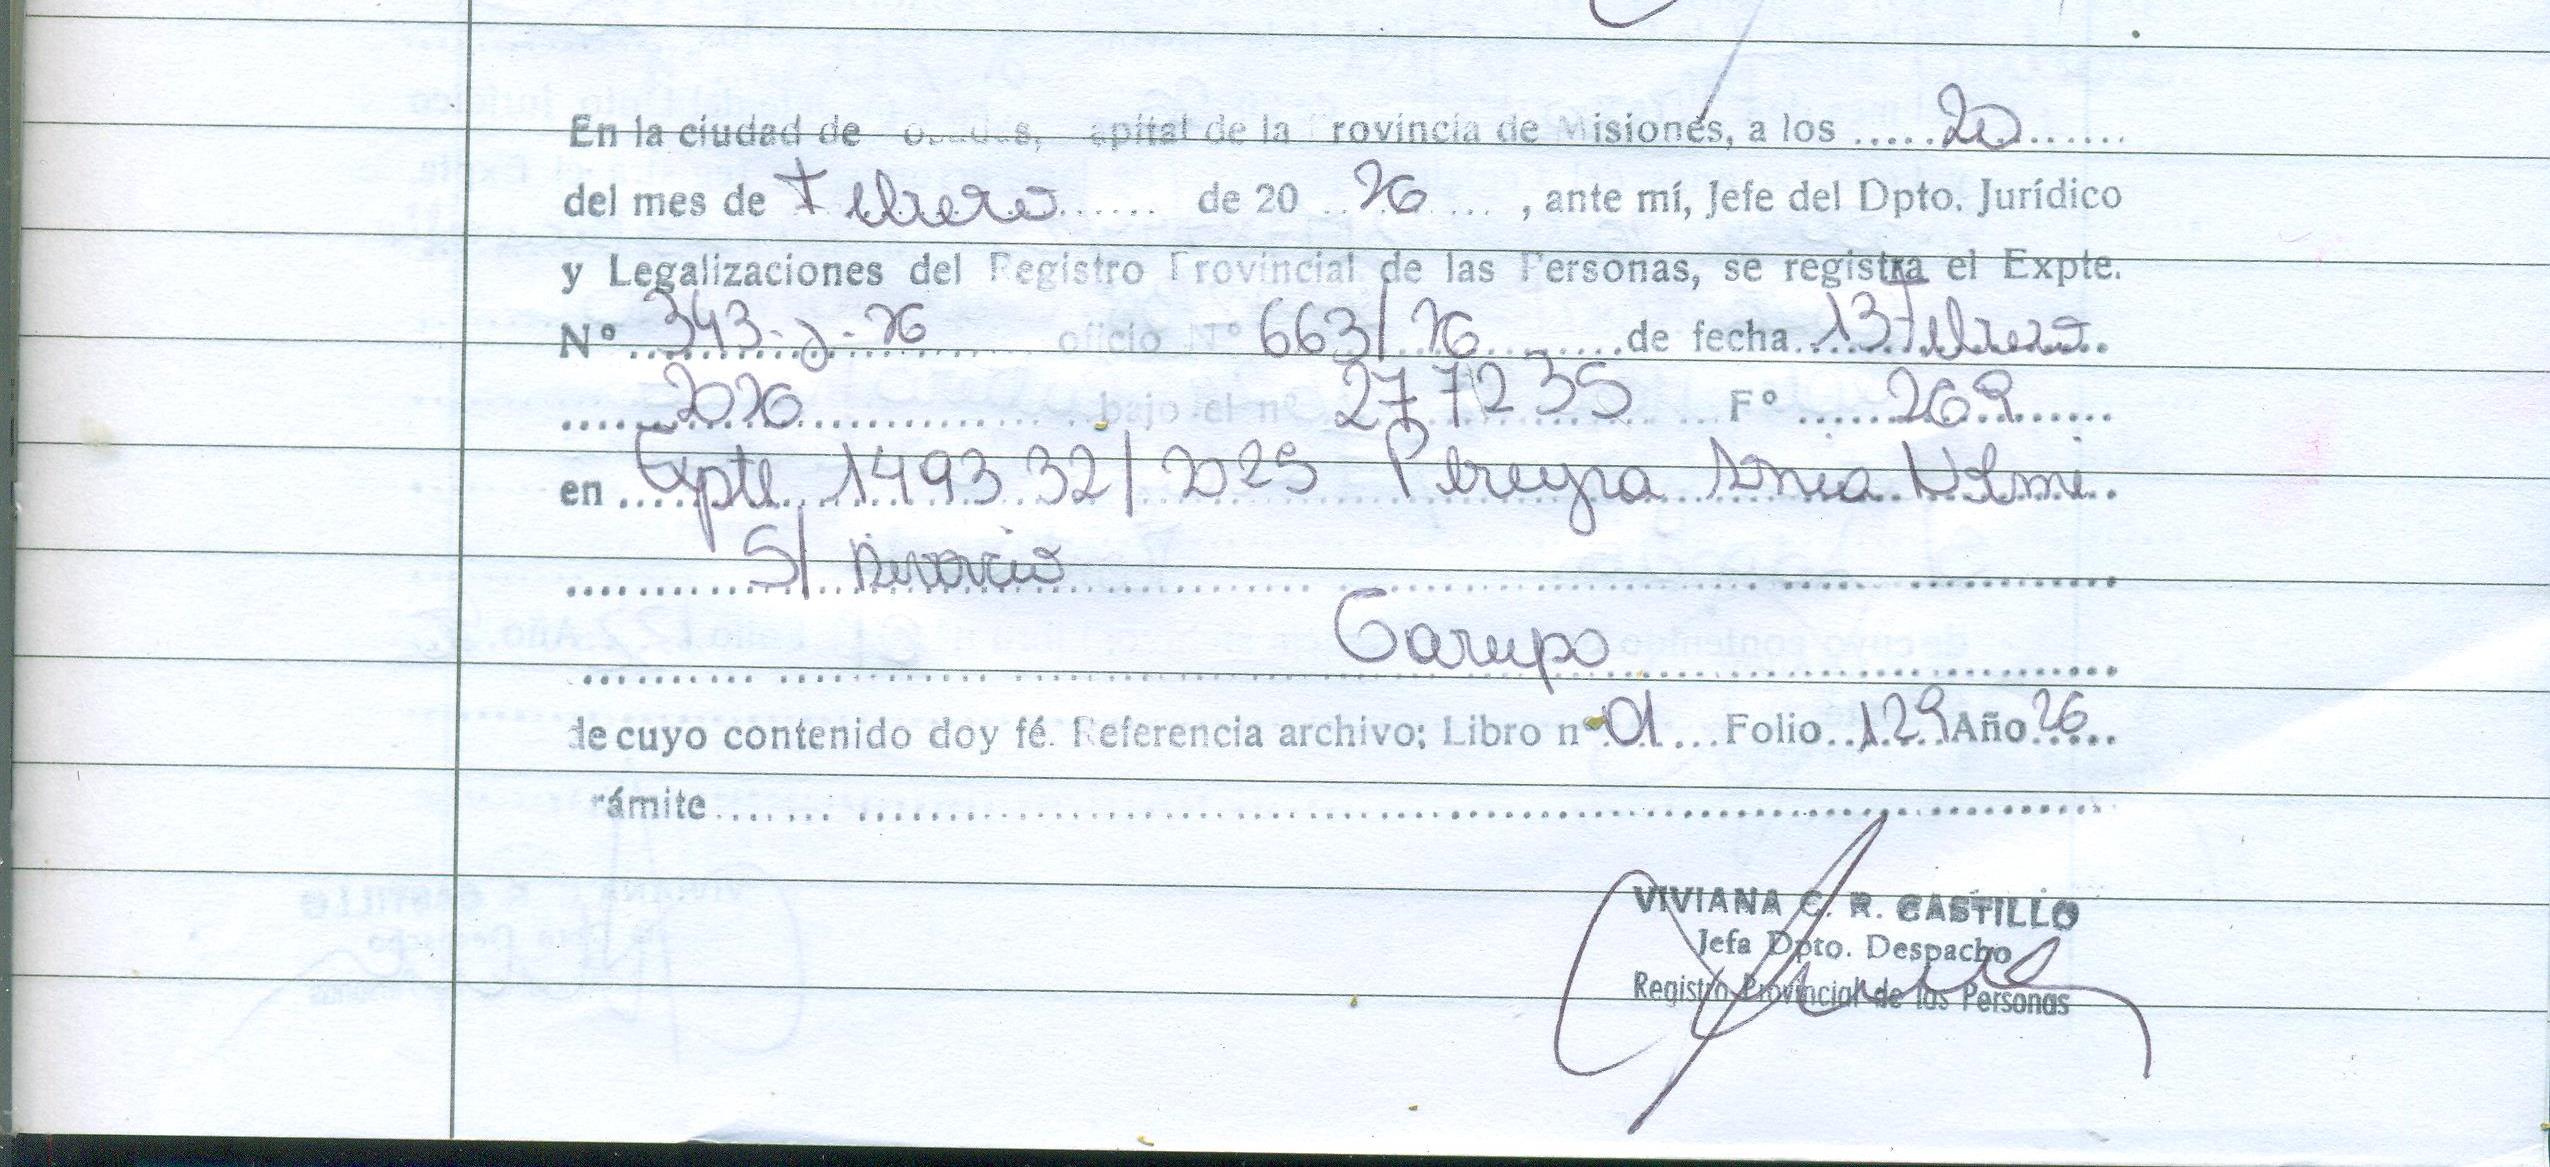 En la ciudad de Posadas, Capital de la Provincia de Misiones, a los ..... 20 .......
del mes de Febrero ....... de 20 .. 26 ... , ante mí, Jefe del Dpto. Jurídico
y Legalizaciones del Registro Provincial de las Personas, se registra el Expte.
N° ... 343-J-26 ... oficio N° 663/26 ........ de fecha .. 13 Febrero ..
..... 2026 ..... bajo el nº 277235 ... F° ..... 269 ......
en ... Expte 149332/2025 Pereyra Sonia Noemi
S/ Divorcio
Garupa
de cuyo contenido doy fé. Referencia archivo; Libro nº 01 ... Folio.. 129 Año 26 ..
rámite .......
VIVIANA C. R. CASTILLO
Jefa Dpto. Despacho
Registro Provincial de las Personas